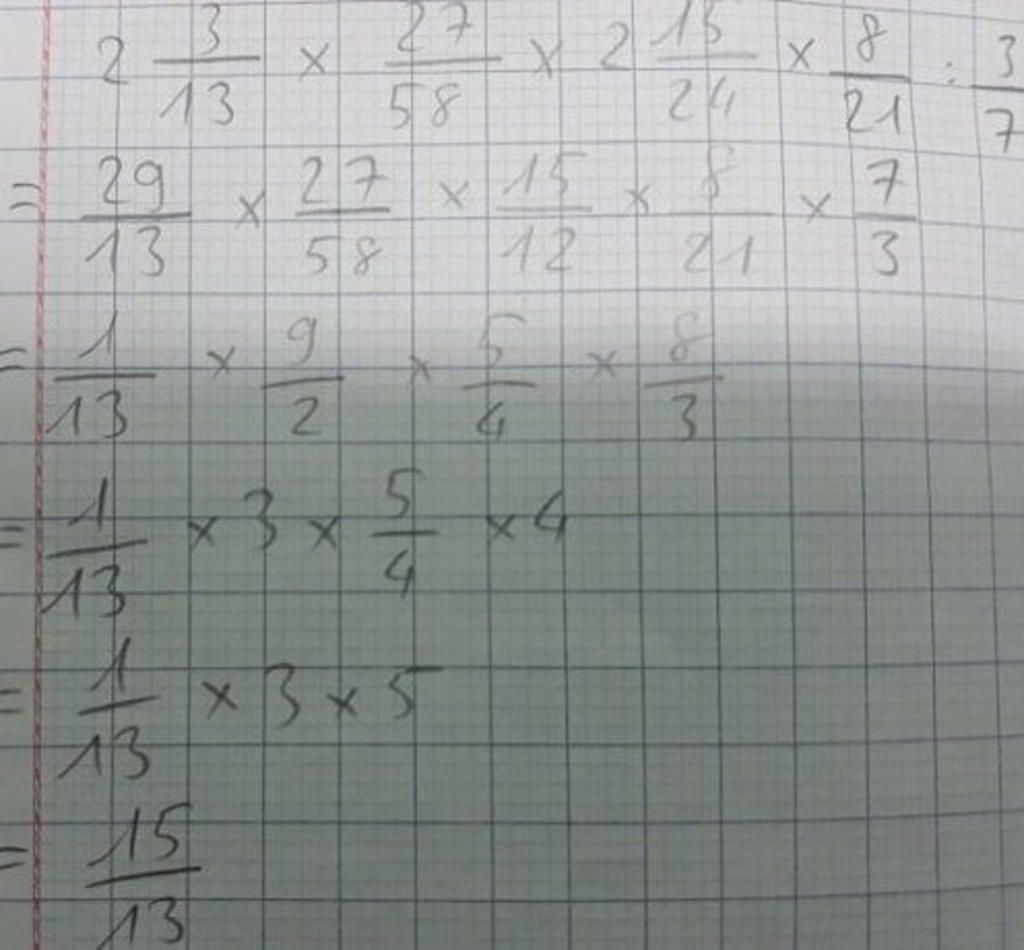 2 3/13 × 27/58 × 2 15/24 × 8/21 : 3/7
= 29/13 × 27/58 × 15/12 × 8/21 × 7/3
= 1/13 × 9/2 × 5/4 × 8/3
= 1/13 × 3 × 5/4 × 4
= 1/13 × 3 × 5
= 15/13